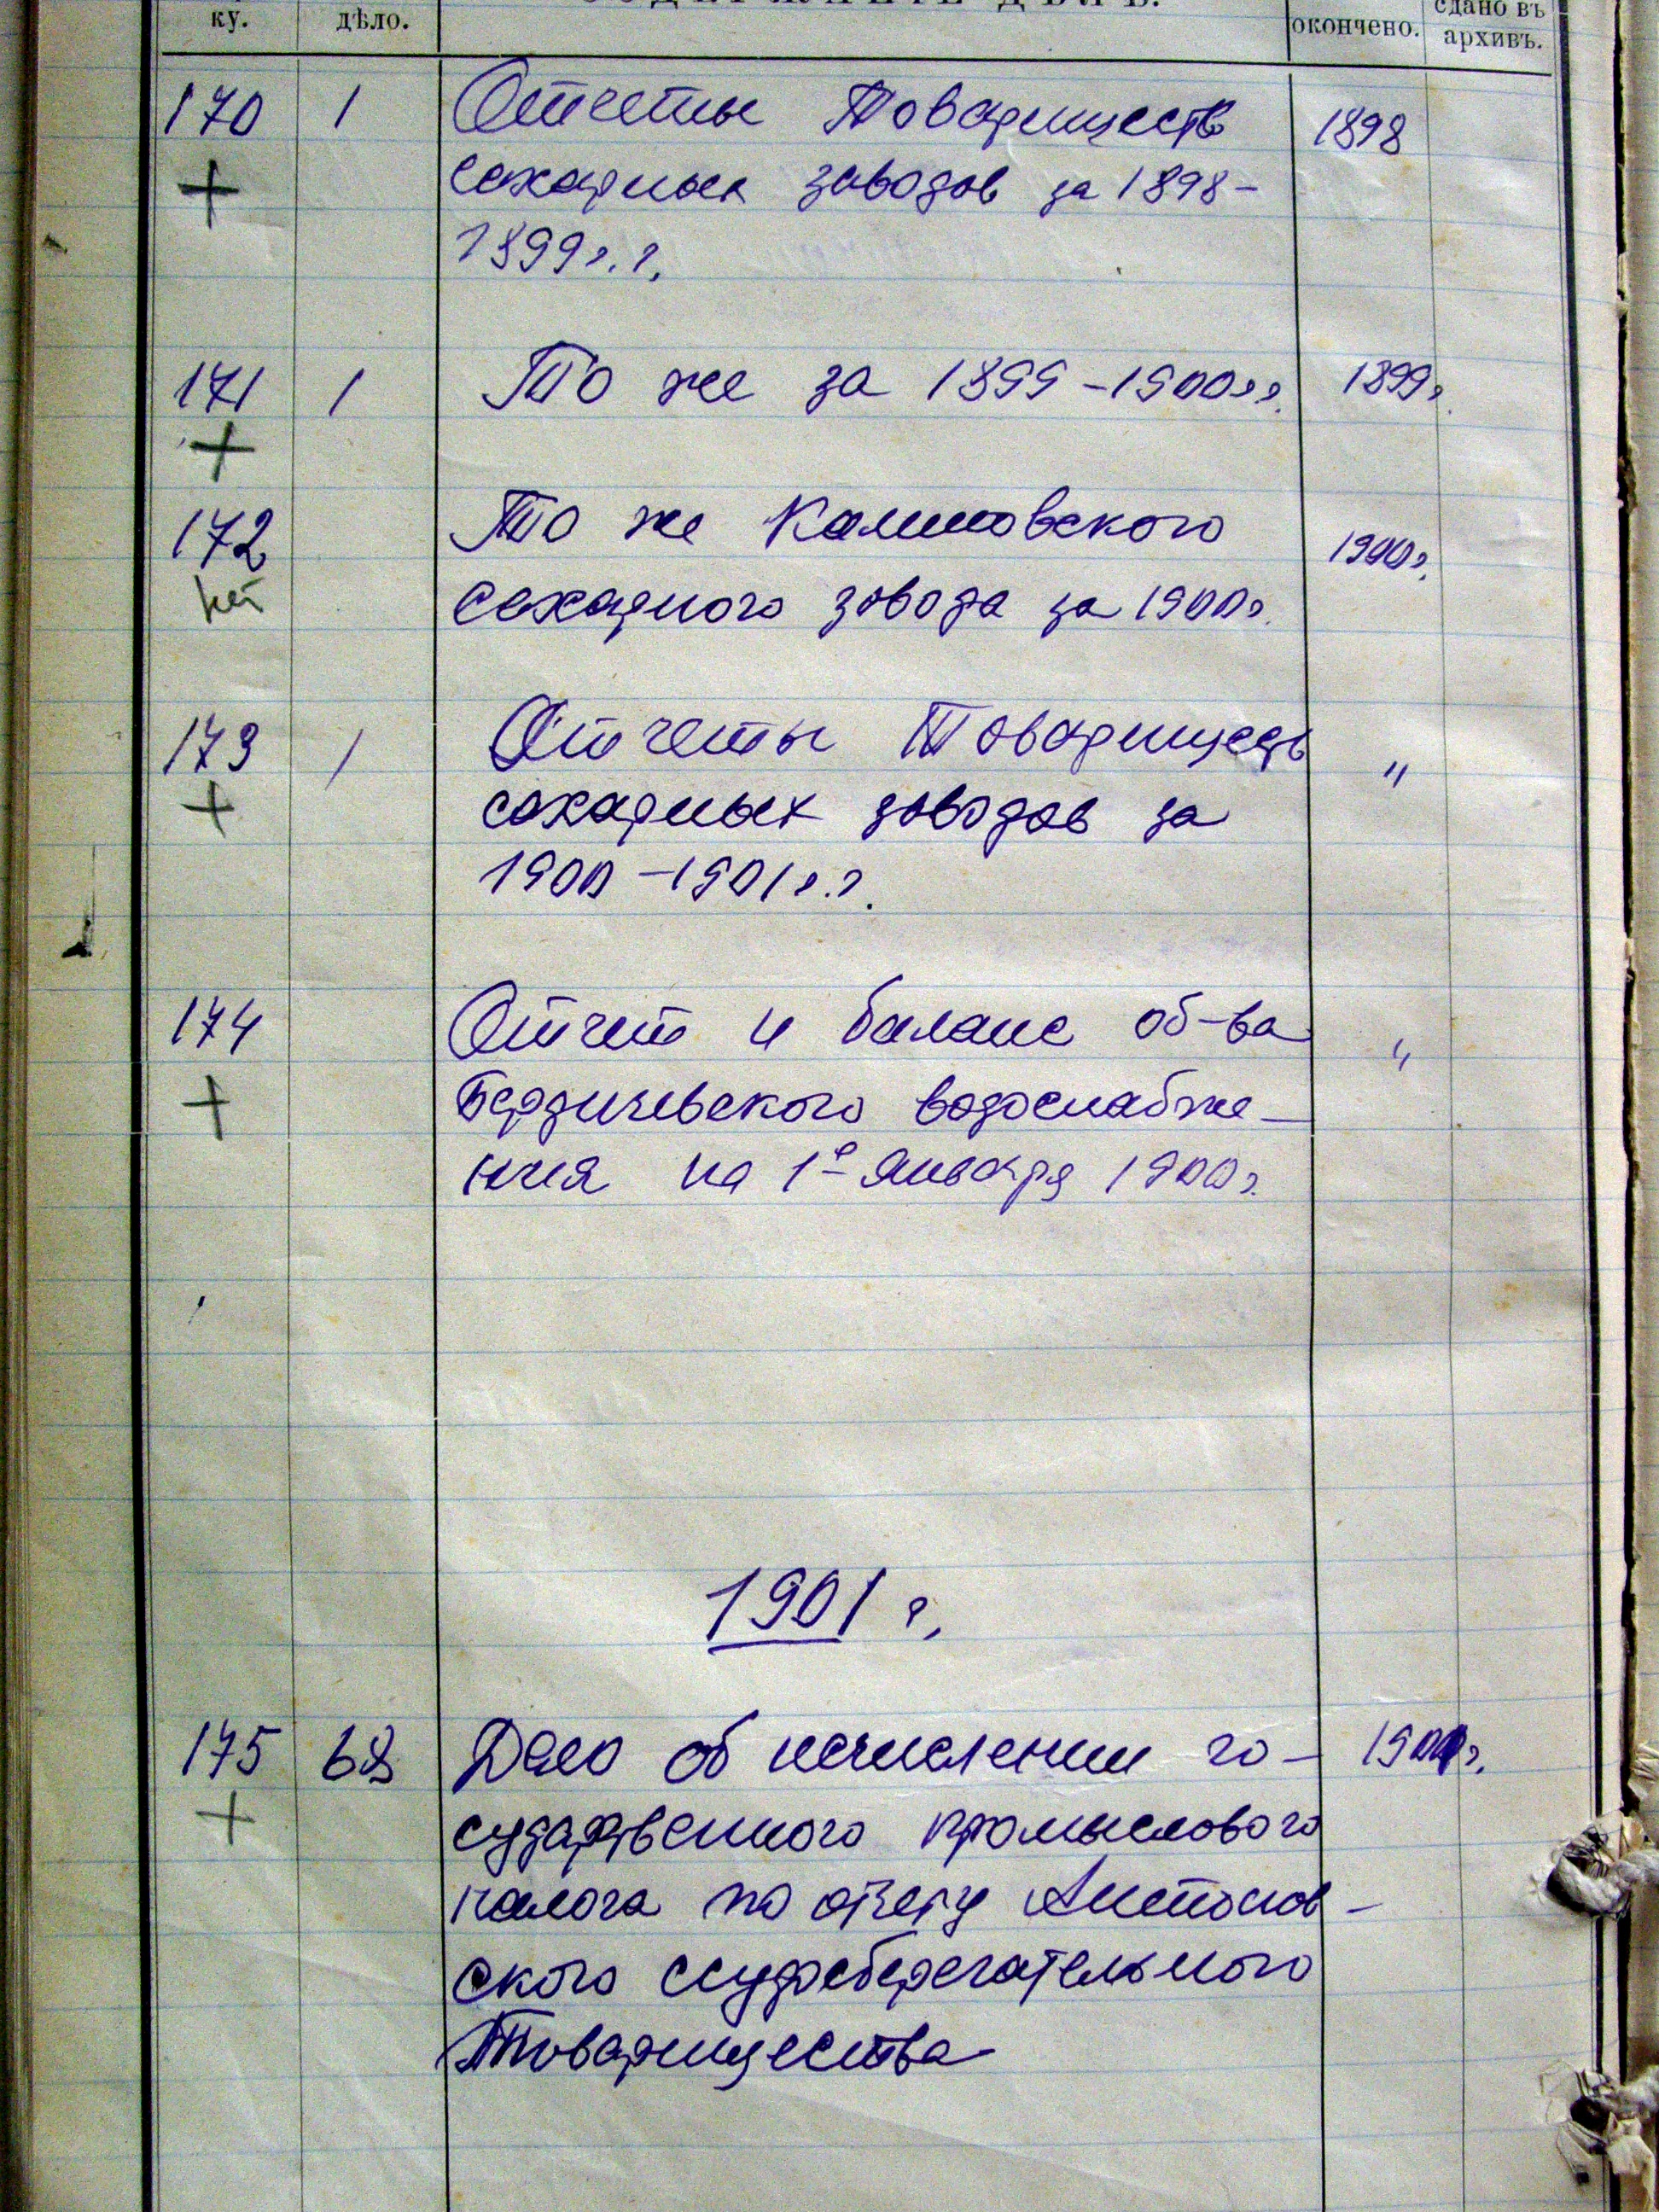 ку. дѣло. СОДЕРЖАНІЕ ДѢЛЪ. окончено. сдано въ архивъ.
170 1 Отчеты Товариществ 1898
+ сахарных заводов за 1898-
1899г.г.
171 1 То же за 1899-1900гг. 1899г.
+
172 То же Калиновского 1900г.
нет сахарного завода за 1900г.
173 1 Отчеты Товариществ "
+ сахарных заводов за
1900-1901г.г.
174 Отчет и баланс об-ва "
+ Бердичевского водоснабже-
ния на 1е Января 1900г.
1901 г.
175 Дело об исчислении го-
+ сударственного промыслового
налога по отчету Антонов-
ского ссудосберегательного
Товарищества